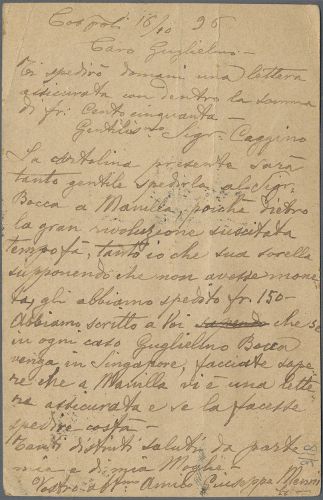 Cospoli 16/10 96
Caro Guglielmo -
Ti spedirò domani una lettera
assicurata con dentro la somma
di fri Cento cinquanta -
Gentiliss mo Sigr. Caggino
La cartolina presente sarà
tanto gentile spedirla al Sigr.
Bocca a Manilla, poichè dietro
la gran rivoluzione suscitata
tempo fà, tanto io che sua sorella
supponendo che non avesse mone-
ta, gli abbiamo spedito fr. 150-
Abbiamo scritto a Voi che se
in ogni caso Guglielmo Bocca
venga in Singapore, facciate sape-
re che a Manilla vi è una lette-
ra assicurata e se la facesse
spedire costà -
Tanti distinti saluti da parte
mia e di mia Moglie -
Vostro Amico Giuseppe